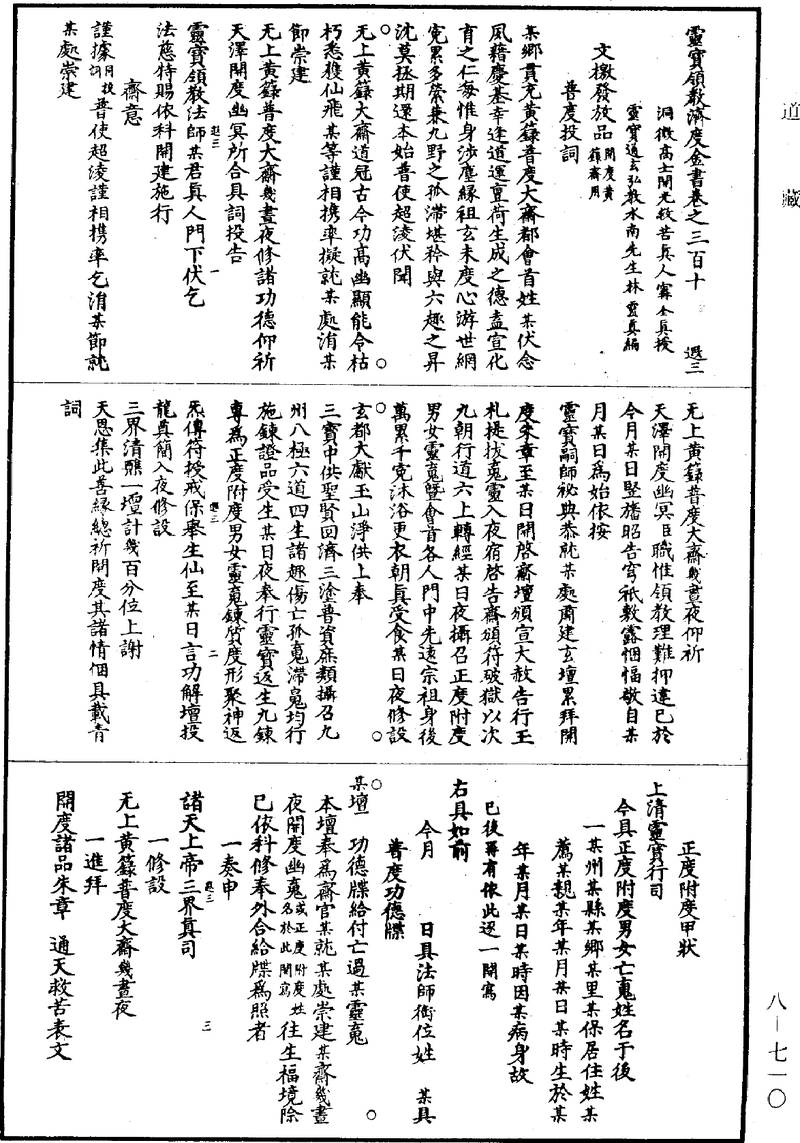 道藏
靈寶領教濟度金書卷之三百十 遐三
洞微高士開光救苦真人甯全真授
靈寶通玄弘教水南先生林靈真編
文檄發放品開度黃籙齋用
普度投詞
某鄉貫充黃籙普度大齋都會首姓某伏念
夙藉慶基幸逢道運亶荷生成之德盍宣化
育之仁每惟身涉塵緣祖玄未度心游世網
寃累多縈兼九野之孤滯堪矜與六趣之昇
沈莫拯期還本始普使超淩伏聞
无上黃籙大齋道冠古今功高幽顯能令枯
朽悉獲仙飛某等謹相携率擬就某處涓某
節崇建
无上黃籙普度大齋幾晝夜修諸功德仰祈
天澤開度幽冥所合具詞投告
靈寶領教法師某君真人門下伏乞
法慈特賜依科開建施行
齋意
謹據某鄉貫投詞普使超淩謹相携率乞涓某節就
某處崇建
无上黃籙普度大齋幾晝夜仰祈
天澤開度幽冥臣職惟領教理難抑違已於
今月某日竪旛昭告穹祇敷露悃愊敬自某
月某日為始依按
靈寶嗣師秘典恭就某處肅建玄壇累拜開
度朱章至某日開啓齋壇頒宣大赦告行玉
札提拔䰟靈入夜宿啓告齋頒符破獄以次
九朝行道六上轉經某日夜攝召正度附度
男女靈䰟曁會首各人門中先遠宗祖身後
萬累千寃沐浴更衣朝真受食某日夜修設
玄都大獻玉山淨供上奉
三寶中供聖賢回濟三塗普資庶類攝召九
州八極六道四生諸趣傷亡孤䰟滯鬼均行
施鍊證品受生某日夜奉行靈寶返生九鍊
專為正度附度男女靈䰟鍊質度形聚神返
炁傳符授戒保舉生仙至某日言功解壇投
龍奠簡入夜修設
三界清醮一壇計幾百分位上謝
天恩集此善緣總祈開度其諸情悃具載青
詞
正度附度甲狀
上清靈寶行司
今具正度附度男女亡䰟姓名于後
一某州某縣某鄉某里某保居住姓某
薦某親某年某月某日某時生於某
年某月某日某時因某病身故
已後再有依此逐一開寫
右具如前
今月 日具法師銜位姓 某具
普度功德牒
某壇 功德牒給付亡過某靈䰟
本壇奉為齋官某就某處崇建某齋幾晝
夜開度幽䰟或正度附度姓名於此開寫往生福境除
已依科修奉外合給牒為照者
一奏申
諸天上帝三界真司
一修設
无上黃籙普度大齋幾晝夜
一進拜
開度諸品朱章 通天救苦表文
八-七一〇